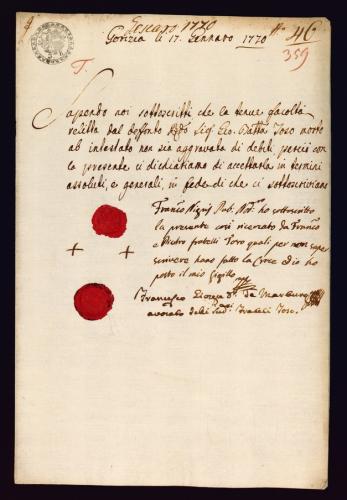 1770
Gorizia li 17. Gennaro 1770 46
359
T.
Sapendo noi sottoscritti che la tenue facoltà
relitta dal deffonto Sig. Gio. Batta Toso morto
ab intestato non sia aggravata di debiti perciò con
la presente ci dichiariamo di accettarla in termini
assoluti, e generali, in fede di che ci sottoscriviamo
Pub. ho sottoscritto
la presente così ricercato da Franco
e Pietro fratelli Toso quali per non saper
scrivere hano fatto la Croce ed io ho
posto il mio sigillo
+ +
Francesco de Marburg
avocato delli fratelli Toso.